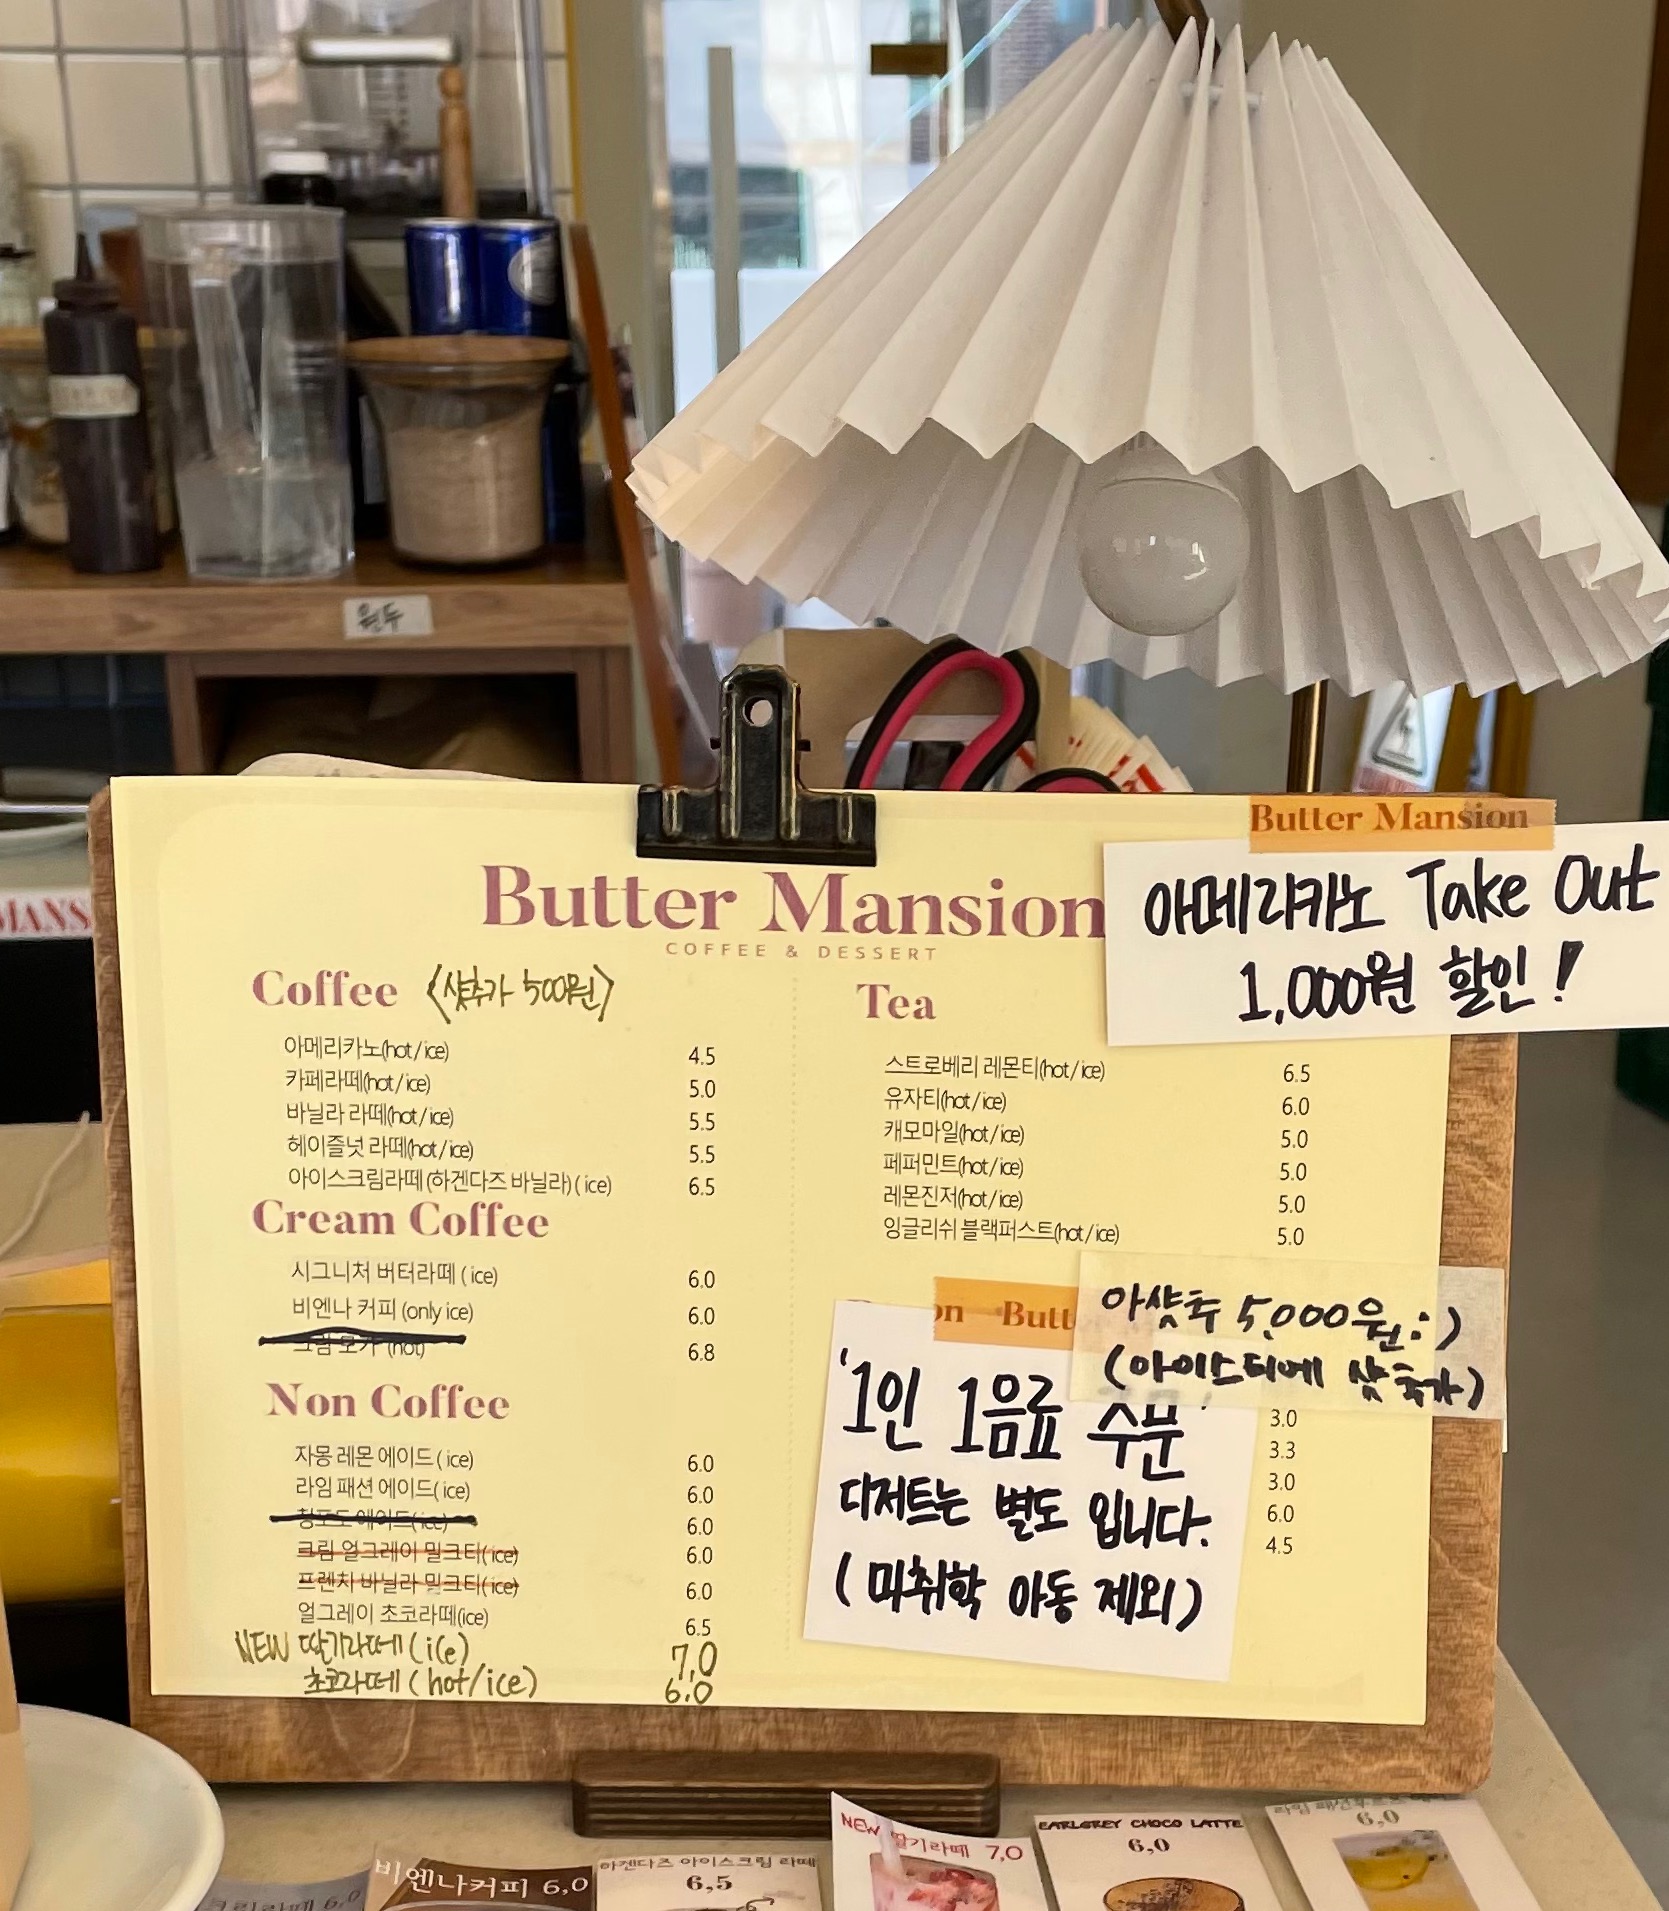 원두
MANS
Butter Mansion
아메리카노 Take Out
1,000원 할인!
Butter Mansion
COFFEE & DESSERT
Coffee 〈샷추가 500원〉
아메리카노(hot/ice) 4.5
카페라떼(hot/ice) 5.0
바닐라 라떼(hot/ice) 5.5
헤이즐넛 라떼(hot/ice) 5.5
아이스크림라떼 (하겐다즈 바닐라) (ice) 6.5
Cream Coffee
시그니처 버터라떼 (ice) 6.0
비엔나 커피 (only ice) 6.0
크림 모카 (hot) 6.8
Non Coffee
자몽 레몬 에이드 (ice) 6.0
라임 패션 에이드 (ice) 6.0
청포도 에이드(ice) 6.0
크림 얼그레이 밀크티(ice) 6.0
프렌치 바닐라 밀크티(ice) 6.0
얼그레이 초코라떼(ice) 6.5
NEW 딸기라떼 (ice) 7.0
초코라떼 (hot/ice) 6.0
Tea
스트로베리 레몬티(hot/ice) 6.5
유자티(hot/ice) 6.0
캐모마일(hot/ice) 5.0
페퍼민트(hot/ice) 5.0
레몬진저(hot/ice) 5.0
잉글리쉬 블랙퍼스트(hot/ice) 5.0
아샷추 5,000원 :)
(아이스티에 샷 추가)
on Butt
'1인 1음료 주문'
디저트는 별도 입니다.
(미취학 아동 제외)
3.0
3.3
3.0
6.0
4.5
크림라떼 6,0
비엔나커피 6,0
하겐다즈 아이스크림 라떼
6,5
NEW 딸기라떼 7,0
EARLGREY CHOCO LATTE
6,0
라임 패션
6,0